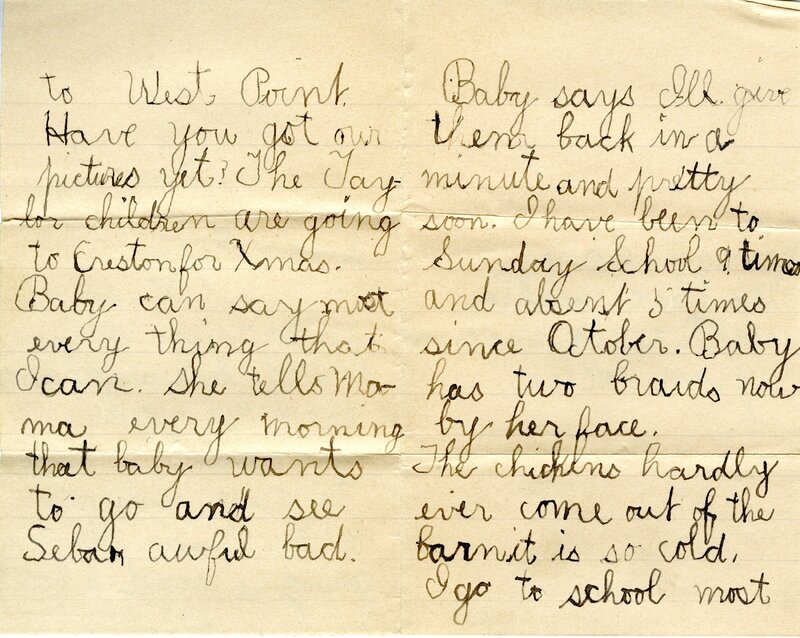 to West Point.
Have you got our
pictures yet? The Tay-
lor children are going
to Creston for Xmas.
Baby can say most
every thing that
I can. She tells Ma-
ma every morning
that baby wants
to go and see
Seban awful bad.
Baby says I'll give
them back in a
minute and pretty
soon. I have been to
Sunday School 9 times
and absent 5 times
since Otober. Baby
has two braids now
by her face.
The chickens hardly
ever come out of the
barn it is so cold.
I go to school most